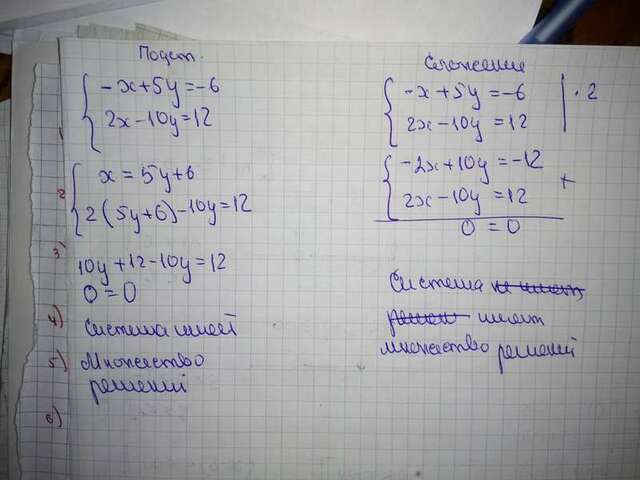 Подст.
-x+5y=-6
2x-10y=12
x=5y+6
2(5y+6)-10y=12
3)
10y+12-10y=12
0=0
4)
Система имеет
5)
Множество
решений
6)
Сложение
-x+5y=-6 | ·2
2x-10y=12
-2x+10y=-12
+
2x-10y=12
0=0
Система не имеет
решен имеет
множество решений